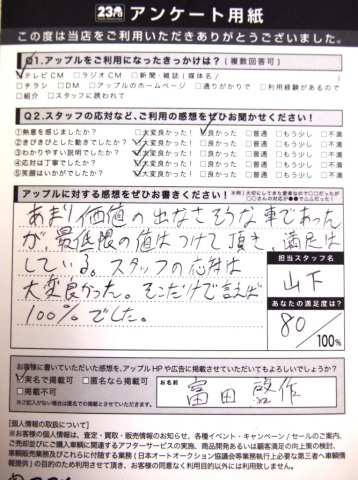 アンケート用紙
この度は当店をご利用いただきありがとうございました。
Q1.アップルをご利用になったきっかけは？(複数回答可)
□テレビCM □ラジオCM □新聞・雑誌(媒体名/ )
□チラシ □DM □アップルのホームページ □通りがかりで □利用経験があるので
□紹介 □スタッフに誘われて
Q2.スタッフの応対など、ご利用の感想をぜひお聞かせください！
①熱意を感じましたか？ □大変良かった！ □良かった □普通 □もう少し □不満
②きびきびとした動きでしたか？ □大変良かった！ □良かった □普通 □もう少し □不満
③わかりやすい説明でしたか？ □大変良かった！ □良かった □普通 □もう少し □不満
④応対は丁寧でしたか？ □大変良かった！ □良かった □普通 □もう少し □不満
⑤笑顔はいかがでしたか？ □大変良かった！ □良かった □普通 □もう少し □不満
アップルに対する感想をぜひお書きください！
※例)大切にしてきた愛車なので○○だったが
○○さんの対応が●●で△△だった！
あまり価値の出なさそうな車であった
が、最低限の値はつけて頂き、満足は
している。スタッフの応対は
大変良かった。そこだけで言えば
100%でした。
担当スタッフ名
山下
あなたの満足度は？
80
/100%
お客様に書いていただいた感想を、アップルHPや広告に掲載させていただいてもよろしいでしょうか？
□実名で掲載可 □匿名なら掲載可
□掲載不可
※ご記入がない場合は匿名での掲載とさせていただきます。
お名前
富田 啓作
【個人情報の取扱について】
※お客様の個人情報は、査定・買取・販売情報のお知らせ、各種イベント・キャンペーン/セールのご案内、
ご売却並びにご購入車輌に関連するアフターサービスの実施、商品開発あるいは顧客満足の向上策の検討、
車輌販売業務及びこれらに付随する業務(日本オートオークション協議会等業務執行上必要な第三者へ車輌情
報提供)の目的のため利用させて頂き、お客様の同意なく利用目的以外には利用致しません。